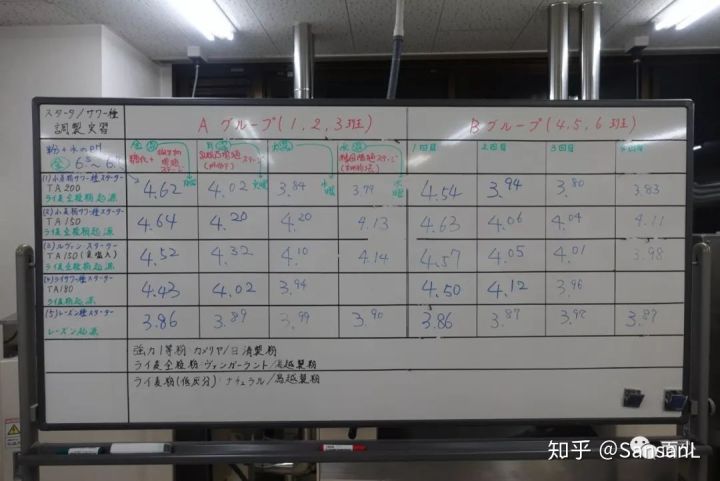 スタータ/サワー種
調製実習
Aグループ(1,2,3班)
Bグループ(4,5,6班)
粉+水のpH
1回目
2回目
3回目
4回目
(1)小麦粉サワー種スターター
TA200
ライ麦全粒粉起源
4.62
4.02
3.84
3.79
4.54
3.94
3.80
3.83
(2)小麦粉サワー種スターター
TA150
ライ麦全粒粉起源
4.64
4.20
4.20
4.13
4.63
4.06
4.04
4.11
(3)ルヴァンスターター
TA150(食塩入)
ライ麦全粒粉起源
4.52
4.32
4.10
4.14
4.57
4.05
4.01
3.98
(4)ライサワー種スターター
TA180
ライ麦粉起源
4.43
4.02
3.94
4.50
4.12
3.96
(5)レーズン種スターター
レーズン起源
3.86
3.89
3.99
3.90
3.86
3.87
3.92
3.87
強力1等粉・カメリヤ/日清製粉
ライ麦全粒粉・ヴァンガーラント/鳥越製粉
ライ麦粉(低灰分)・ナチュラル/鳥越製粉
知乎 @SansanL